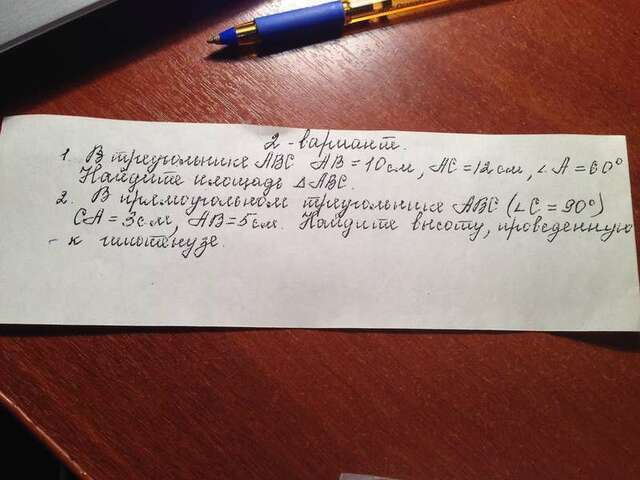 2 - вариант.
1. В треугольнике ABC AB = 10 см, AC = 12 см, ∠A = 60°
Найдите площадь △ABC.
2. В прямоугольном треугольнике ABC (∠C = 90°)
CA = 3 см, AB = 5 см. Найдите высоту, проведенную
- к гипотенузе.